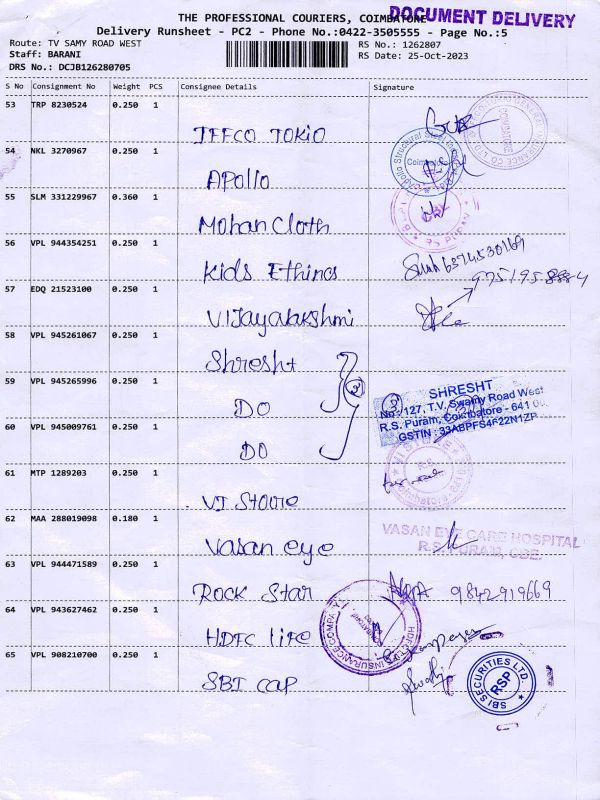 THE PROFESSIONAL COURIERS, COIMBATORE
DOCUMENT DELIVERY
Delivery Runsheet - PC2 - Phone No.:0422-3505555 - Page No.:5
Route: TV SAMY ROAD WEST
Staff: BARANI
DRS No.: DCJB126280705
RS No.: 1262807
RS Date: 25-Oct-2023
S No Consignment No Weight PCS Consignee Details Signature
53 TRP 8230524 0.250 1
IFFCO TOKIO
54 NKL 3270967 0.250 1
Apollo
Apollo Structural Steel
Coimbatore
55 SLM 331229967 0.360 1
Mohan Cloth
R S PURAM
56 VPL 944354251 0.250 1
Kids Ethincs
6374530169
57 EDQ 21523100 0.250 1
9751958884
Vijayalakshmi
58 VPL 945261067 0.250 1
Shresht
59 VPL 945265996 0.250 1
DO
3
SHRESHT
No : 127, T.V. Swamy Road West
R.S. Puram, Coimbatore - 641 00
GSTIN : 33ABPFS4F22N1ZP
60 VPL 945009761 0.250 1
DO
61 MTP 1289203 0.250 1
VI Stoore
62 MAA 288019098 0.180 1
Vasan eye
VASAN EYE CARE HOSPITAL
R.S. PURAM, CBE.
63 VPL 944471589 0.250 1
Rock Star
9842919669
64 VPL 943627462 0.250 1
HDFC life
INSURANCE COMPANY
65 VPL 908210700 0.250 1
SBI cap
SBI SECURITIES LTD.
RSP